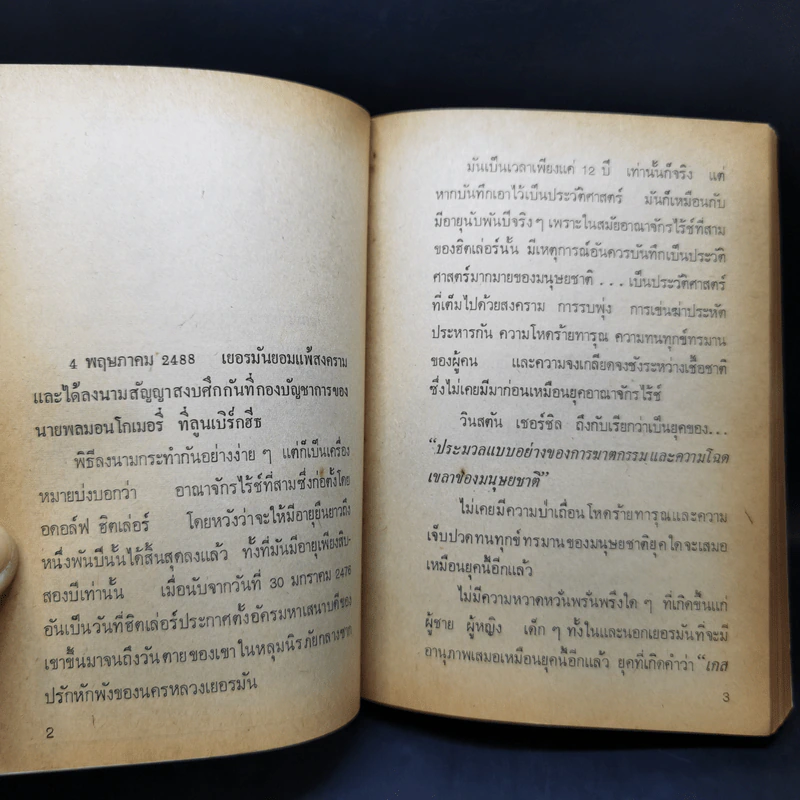 4 พฤษภาคม 2488 เยอรมันยอมแพ้สงคราม
และได้ลงนามสัญญาสงบศึกกันที่กองบัญชาการของ
นายพลมอนโกเมอรี่ ที่ลูนเบิร์กฮีธ
พิธีลงนามกระทำกันอย่างง่าย ๆ แต่ก็เป็นเครื่อง
หมายบ่งบอกว่า อาณาจักรไร้ช์ที่สามซึ่งก่อตั้งโดย
อดอล์ฟ ฮิตเล่อร์ โดยหวังว่าจะให้มีอายุยืนยาวถึง
หนึ่งพันปีนั้นได้สิ้นสุดลงแล้ว ทั้งที่มันมีอายุเพียงสิบ-
สองปีเท่านั้น เมื่อนับจากวันที่ 30 มกราคม 2476
อันเป็นวันที่ฮิตเล่อร์ประกาศตั้งอัครมหาเสนาบดีของ
เขาขึ้นมาจนถึงวันตายของเขาในหลุมนิรภัยกลางซาก
ปรักหักพังของนครหลวงเยอรมัน
2
มันเป็นเวลาเพียงแค่ 12 ปี เท่านั้นก็จริง แต่
หากบันทึกเอาไว้เป็นประวัติศาสตร์ มันก็เหมือนกับ
มีอายุนับพันปีจริง ๆ เพราะในสมัยอาณาจักรไร้ช์ที่สาม
ของฮิตเล่อร์นั้น มีเหตุการณ์อันควรบันทึกเป็นประวัติ
ศาสตร์มากมายของมนุษยชาติ ... เป็นประวัติศาสตร์
ที่เต็มไปด้วยสงคราม การรบพุ่ง การเช่นฆ่าประหัต
ประหารกัน ความโหดร้ายทารุณ ความทนทุกข์ทรมาน
ของผู้คน และความจงเกลียดจงชังระหว่างเชื้อชาติ
ซึ่งไม่เคยมีมาก่อนเหมือนยุคอาณาจักรไร้ช์
วินสตัน เชอร์ชิล ถึงกับเรียกว่าเป็นยุคของ...
"ประมวลแบบอย่างของการฆาตกรรมและความโฉด
เขลาของมนุษยชาติ"
ไม่เคยมีความป่าเถื่อนโหดร้ายทารุณและความ
เจ็บปวดทนทุกข์ทรมานของมนุษยชาติยุคใดจะเสมอ
เหมือนยุคนี้อีกแล้ว
ไม่มีความหวาดหวั่นพรั่นพรึงใด ๆ ที่เกิดขึ้นแก่
ผู้ชาย ผู้หญิง เด็ก ๆ ทั้งในและนอกเยอรมันที่จะมี
อานุภาพเสมอเหมือนยุคนี้อีกแล้ว ยุคที่เกิดคำว่า "เกส
3